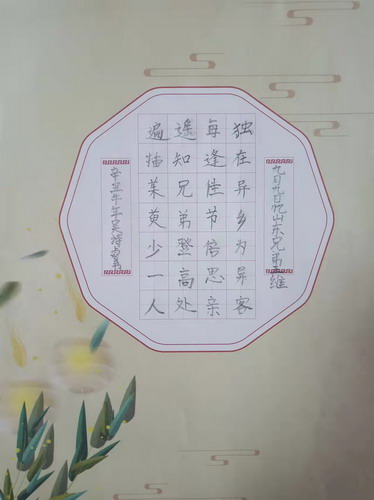 九月九日忆山东兄弟王维
独在异乡为异客
每逢佳节倍思亲
遥知兄弟登高处
遍插茱萸少一人
辛丑牛年吴